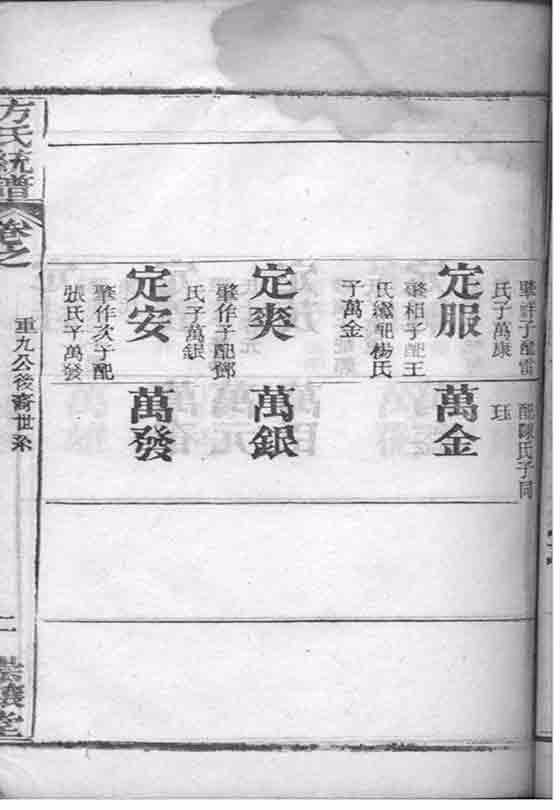 肇祥子配雷
氏子萬康
配陳氏子同
珏
定服
肇相子配王
氏繼配楊氏
子萬金
萬金
定奭
肇作子配鄧
氏子萬銀
萬銀
定安
肇作次子配
張氏子萬發
萬發
方氏統譜
卷之
重九公後裔世系
二
堂